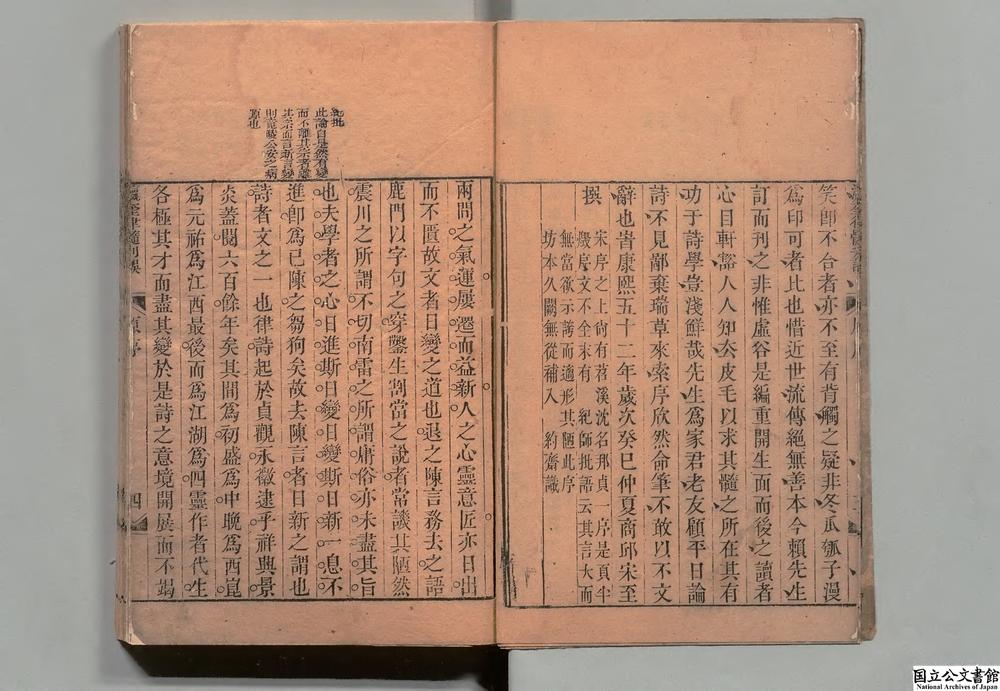 笑卽不台者亦不至有背觸之疑非冬瓜瓠子漫
爲印可者比也惜近世流傳絕無善本今賴先生
訂而刊之非惟虛谷是編重開生面而後之讀者
心目軒豁人人知厺皮毛以求其髓之所在其有
功于詩學豈淺鮮哉先生爲家君老友顧平日論
詩不見鄙棄瑞草來索序欣然命筆不敢以不文
辭也峕康熙五十二年歲次癸巳仲夏商邱宋至
撰
宋序之上尙有苕溪沈名邦貞一序是頁半
幾序文不全末有 紀師批語云其言大而
無當欲示譏而適形其陋此序
坊本久闕無從補入 約齋識
紀批
此論自是然有變
而不離其宗者離
其宗而言新言變
則竟陵公安之病
源也
兩間之氣運屢遷而益新人之心靈意匠亦日出
而不匱故文者日變之道也退之陳言務去之語
鹿門以字句之穿鑿生割當之說者常譏其陋然
震川之所謂不切南雷之所謂庸俗亦未盡其旨
也夫學者之心日進斯日變日變斯日新一息不
進卽爲已陳之芻狗矣故去陳言者日新之謂也
詩者文之一也律詩起於貞觀永徽逮乎祥興景
炎蓋閱六百餘年矣其間爲初盛爲中晚爲西崑
爲元祐爲江西最後而爲江湖爲四靈作者代生
各極其才而盡其變於是詩之意境開展而不竭
瀛奎律髓刊誤 原序 四
国立公文書館
National Archives of Japan